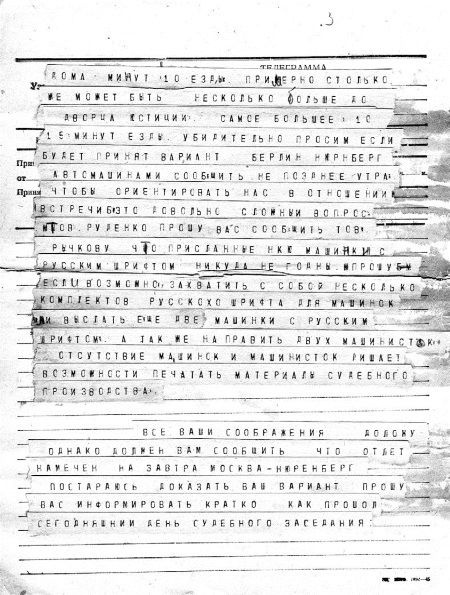 3
ТЕЛЕГРАММА
ДОМА МИНУТ 10 ЕЗДЫ ПРИМЕРНО СТОЛЬКО
ЖЕ МОЖЕТ БЫТЬ НЕСКОЛЬКО БОЛЬШЕ ДО
ДВОРЦА ЮСТИЦИИ. САМОЕ БОЛЬШЕЕ 10
15 МИНУТ ЕЗДЫ. УБИДИТЕЛЬНО ПРОСИМ ЕСЛИ
БУДЕТ ПРИНЯТ ВАРИАНТ БЕРЛИН НЮРНБЕРГ
от АВТОМАШИНАМИ СООБЩИТЬ НЕ ПОЗДНЕЕ УТРА
ЧТОБЫ ОРИЕНТИРОВАТЬ НАС В ОТНОШЕНИИ
ВСТРЕЧИ ЭТО ДОВОЛЬНО СЛОЖНЫЙ ВОПРОС
РУДЕНКО ПРОШУ ВАС СООБЩИТЬ ТОВ
РЫЧКОВУ ЧТО ПРИСЛАННЫЕ НКЮ МАШИНКИ С
РУССКИМ ШРИФТОМ НИКУДА НЕ ГОДНЫ.
ЕСЛИ ВОЗМОЖНО ЗАХВАТИТЬ С СОБОЙ НЕСКОЛЬКО
КОМПЛЕКТОВ РУССКОХО ШРИФТА ДЛЯ МАШИНОК
И ВЫСЛАТЬ ЕЩЕ ДВЕ МАШИНКИ С РУССКИМ
ШРИФТОМ. А ТАК ЖЕ НАПРАВИТЬ ДВУХ МАШИНИСТОК
ОТСУТСТВИЕ МАШИНОК И МАШИНИСТОК ЛИШАЕТ
ВОЗМОЖНОСТИ ПЕЧАТАТЬ МАТЕРИАЛЫ СУДЕБНОГО
ПРОИЗВОДСТВА.
ВСЕ ВАШИ СООБРАЖЕНИЯ ДОЛОЖУ
ОДНАКО ДОЛЖЕН ВАМ СООБЩИТЬ ЧТО ОТЛЕТ
НАМЕЧЕН НА ЗАВТРА МОСКВА-НЮРЕНБЕРГ
ПОСТАРАЮСЬ ДОКАЗАТЬ ВАШ ВАРИАНТ ПРОШУ
ВАС ИНФОРМИРОВАТЬ КРАТКО КАК ПРОШОЛ
СЕГОДНЯШНИЙ ДЕНЬ СУДЕБНОГО ЗАСЕДАНИЯ: